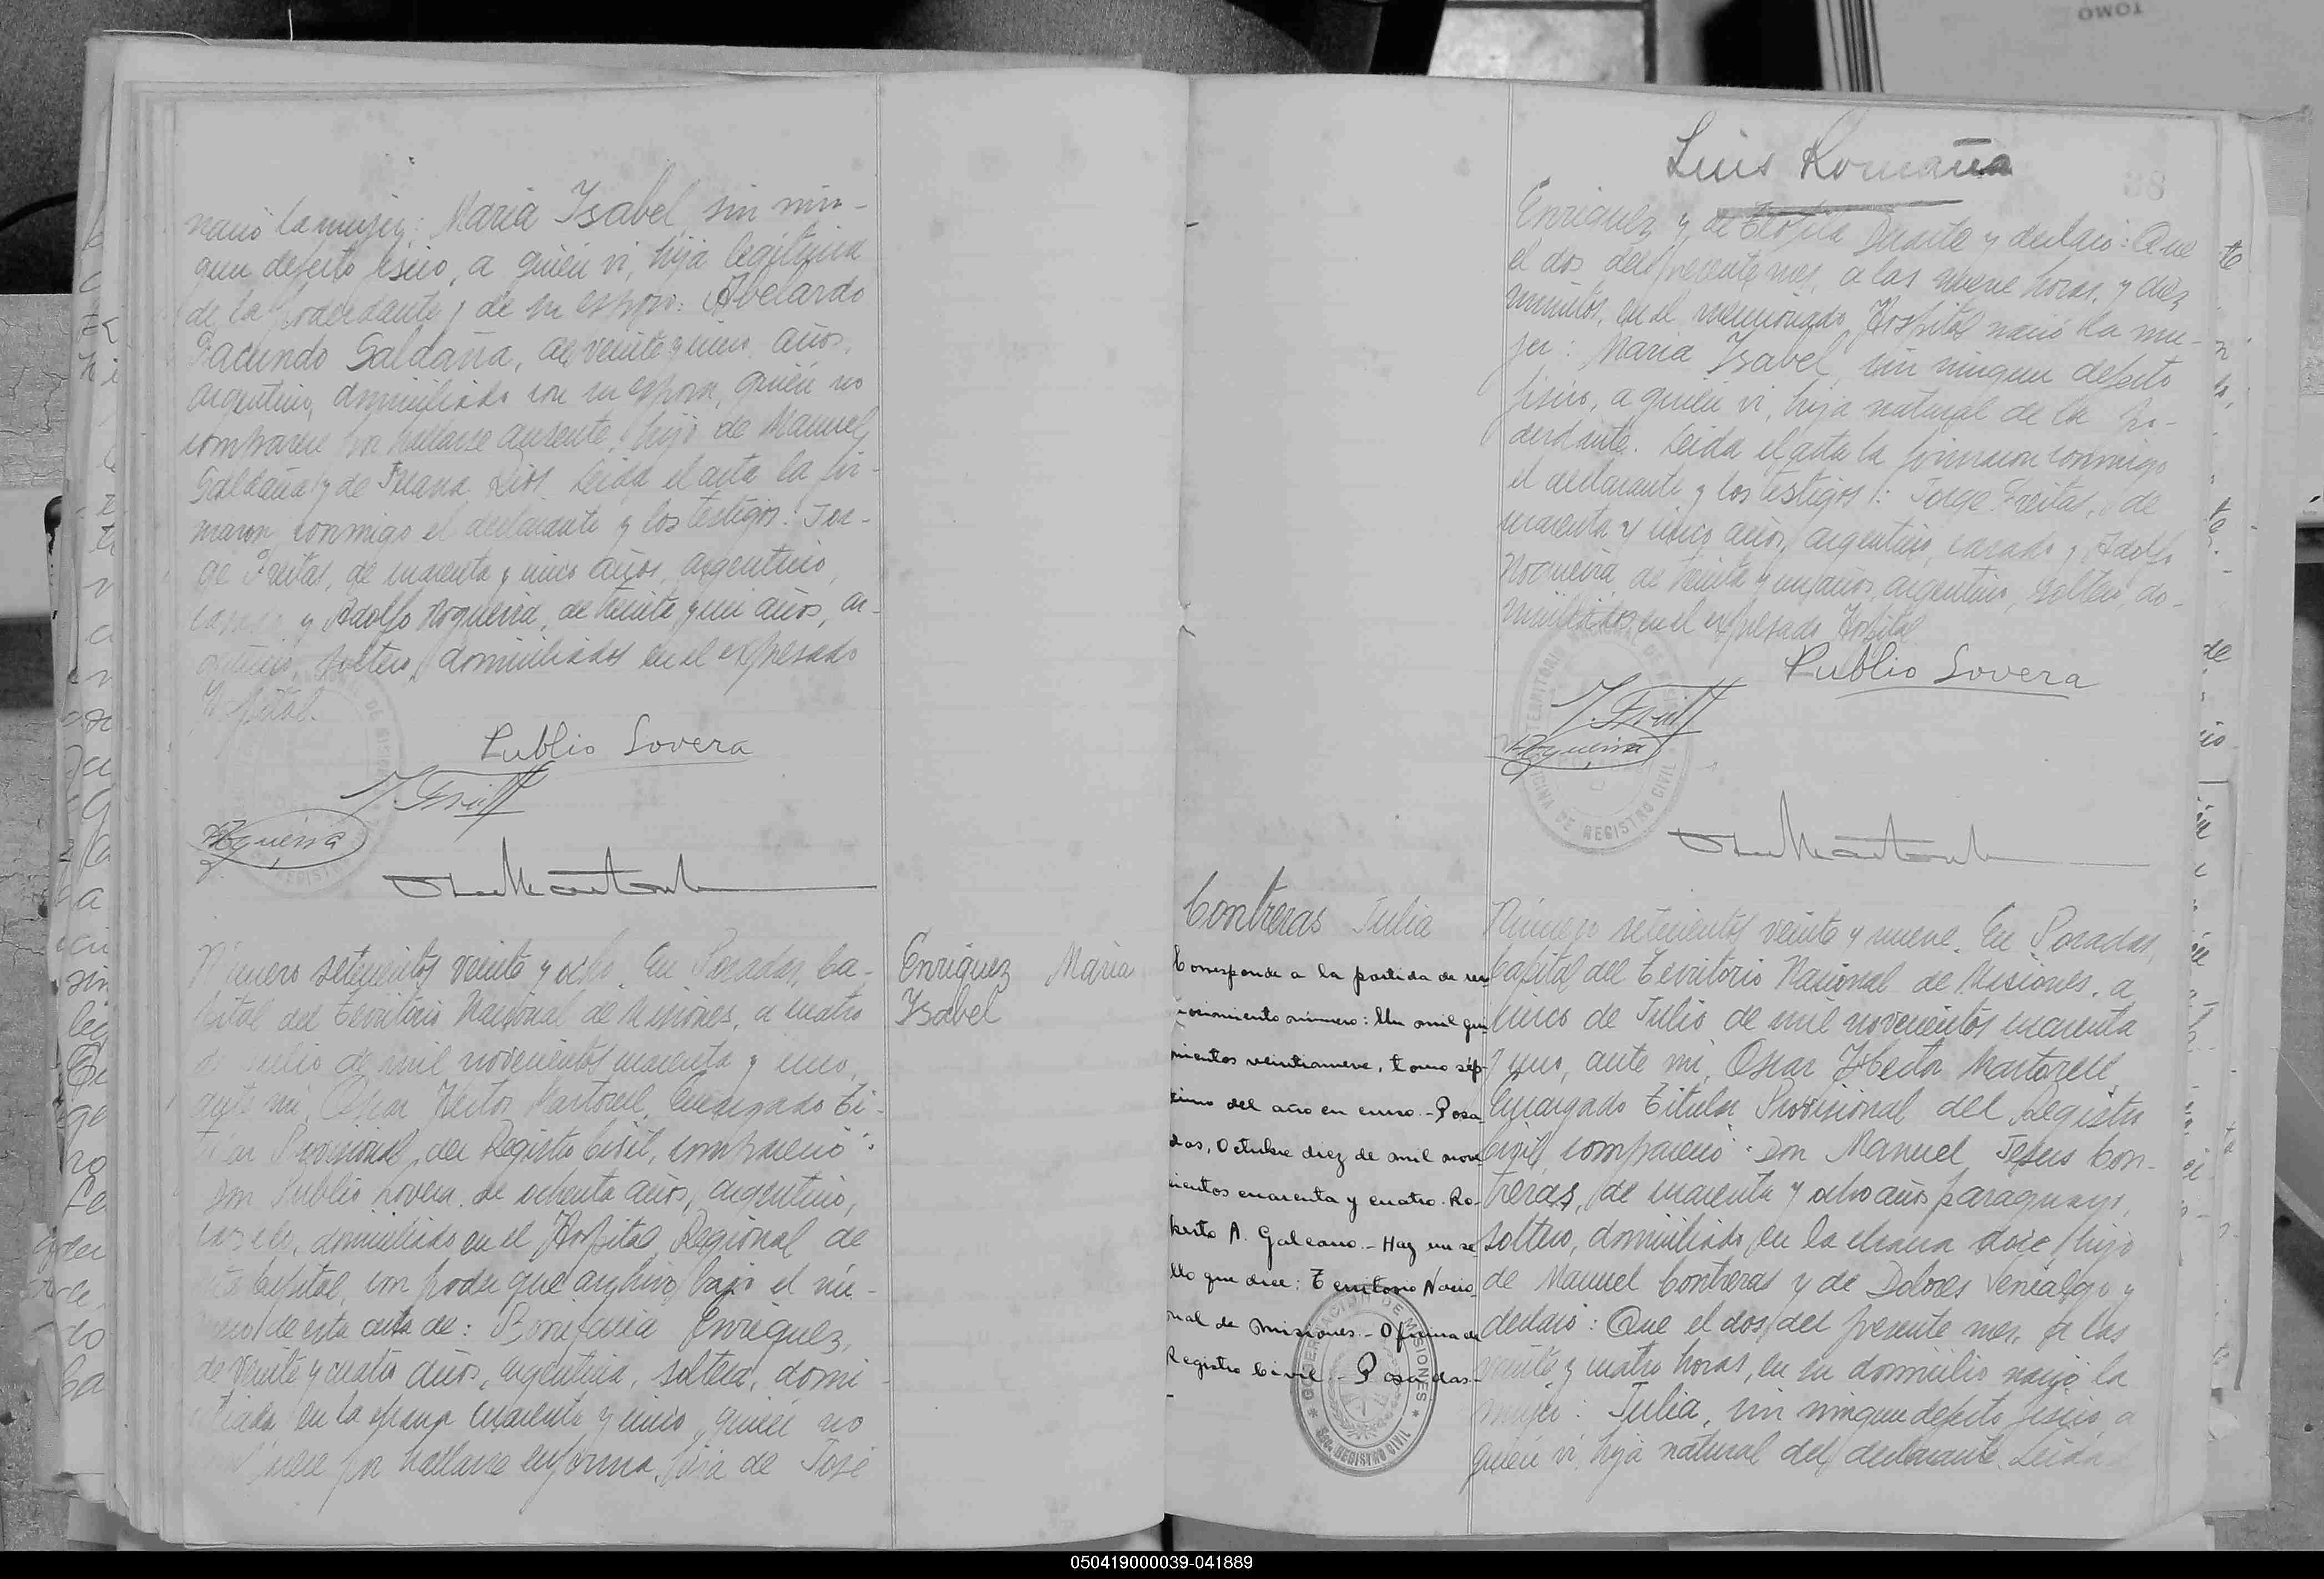 nació la mujer: María Ysabel, sin nin-
gun defecto físico, a quién vi, hija legítima
de la poderdante y de su esposo: Abelardo
Facundo Saldaña, de veinte y cinco años,
argentino, domiciliado con su esposa, quién no
comparece por hallarse ausente, hijo de Manuel
Saldaña y de Juana Ríos. Leída el acta la fir-
maron conmigo el declarante y los testigos: Jor-
ge Freitas, de cuarenta y cinco años, argentino,
casado y Adolfo Nogueira, de treinta y un años, ar-
gentino, soltero, domiciliados en el expresado
Hospital.
Publio Lovera
J. Freitas
Nogueira
Número setecientos veinte y ocho. En Posadas, Ca-
pital del Territorio Nacional de Misiones, a cuatro
de Julio de mil novecientos cuarenta y uno,
ante mí, Oscar Héctor Martorell, Encargado Ti-
tular Provisional del Registro Civil, compareció:
Don Publio Lovera de ochenta años, argentino,
casado, domiciliado en el Hospital Regional de
esta Capital, con poder que archivo bajo el nú-
mero de esta acta de: Bonifacia Enriquez,
de veinte y cuatro años, argentina, soltera, domi-
ciliada en la chacra cuarenta y cinco, quién no
comparece por hallarse enferma, hija de José
Enriquez María
Ysabel
Luis Romaña
98
Enriquez y de Teofila Duarte y declaró: Que
el dos del presente mes, a las nueve horas, y diez
minutos, en el mencionado Hospital nació la mu-
jer: María Ysabel, sin ningun defecto
físico, a quién vi, hija natural de la po-
derdante. Leída el acta la firmaron conmigo
el declarante y los testigos: Jorge Freitas, de
cuarenta y cinco años, argentino, casado y Adolfo
Nogueira, de treinta y un años, argentino, soltero, do-
miciliados en el expresado Hospital
Publio Lovera
J. Freitas
Nogueira
OFICINA DE REGISTRO CIVIL
Contreras Julia
Corresponde a la partida de reco
nocimiento número: Un mil qui
nientos veintinueve, tomo sép-
timo del año en curso.- Posa
das, Octubre diez de mil nove
cientos cuarenta y cuatro. Ro-
berto A. Galeano.- Hay un se
llo que dice: Territorio Nacio
nal de Misiones.- Oficina de
Registro Civil.- Posadas-
GOBERNACION DE MISIONES
SEC. REGISTRO CIVIL
Número setecientos veinte y nueve. En Posadas,
Capital del Territorio Nacional de Misiones, a
cinco de Julio de mil novecientos cuarenta
y uno, ante mí, Oscar Héctor Martorell,
Encargado Titular Provisional del Registro
Civil, compareció: Don Manuel Jesús Con-
treras, de cuarenta y ocho años, paraguayo,
soltero, domiciliado en la chacra doce, hijo
de Manuel Contreras y de Dolores Venialgo y
declaró: Que el dos del presente mes, a las
veinte y cuatro horas, en su domicilio nació la
mujer: Julia, sin ningun defecto físico, a
quién vi, hija natural del declarante. Leída
TOMO
050419000039-041889